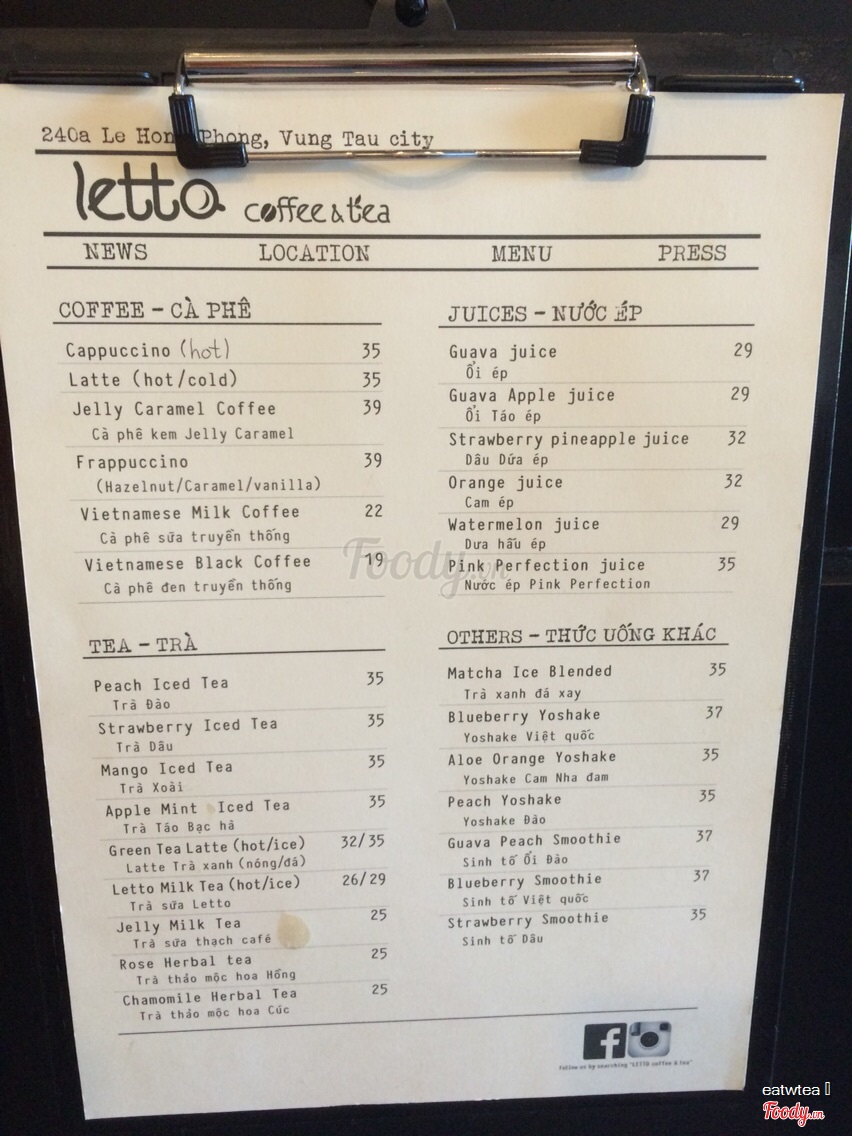 240a Le Hong Phong, Vung Tau city
letto coffee & tea
NEWS LOCATION MENU PRESS
COFFEE - CÀ PHÊ
Cappuccino (hot) 35
Latte (hot/cold) 35
Jelly Caramel Coffee 39
Cà phê kem Jelly Caramel
Frappuccino 39
(Hazelnut/Caramel/vanilla)
Vietnamese Milk Coffee 22
Cà phê sữa truyền thống
Vietnamese Black Coffee 19
Cà phê đen truyền thống
TEA - TRÀ
Peach Iced Tea 35
Trà Đào
Strawberry Iced Tea 35
Trà Dâu
Mango Iced Tea 35
Trà Xoài
Apple Mint Iced Tea 35
Trà Táo Bạc hà
Green Tea Latte (hot/ice) 32/35
Latte Trà xanh (nóng/đá)
Letto Milk Tea (hot/ice) 26/29
Trà sữa Letto
Jelly Milk Tea 25
Trà sữa thạch café
Rose Herbal tea 25
Trà thảo mộc hoa Hồng
Chamomile Herbal Tea 25
Trà thảo mộc hoa Cúc
JUICES - NƯỚC ÉP
Guava juice 29
Ổi ép
Guava Apple juice 29
Ổi Táo ép
Strawberry pineapple juice 32
Dâu Dứa ép
Orange juice 32
Cam ép
Watermelon juice 29
Dưa hấu ép
Pink Perfection juice 35
Nước ép Pink Perfection
OTHERS - THỨC UỐNG KHÁC
Matcha Ice Blended 35
Trà xanh đá xay
Blueberry Yoshake 37
Yoshake Việt quốc
Aloe Orange Yoshake 35
Yoshake Cam Nha đam
Peach Yoshake 35
Yoshake Đào
Guava Peach Smoothie 37
Sinh tố Ổi Đào
Blueberry Smoothie 37
Sinh tố Việt quốc
Strawberry Smoothie 35
Sinh tố Dâu
follow us by searching "LETTO coffee & tea"
Foody.vn
eatwtea
Foody.vn